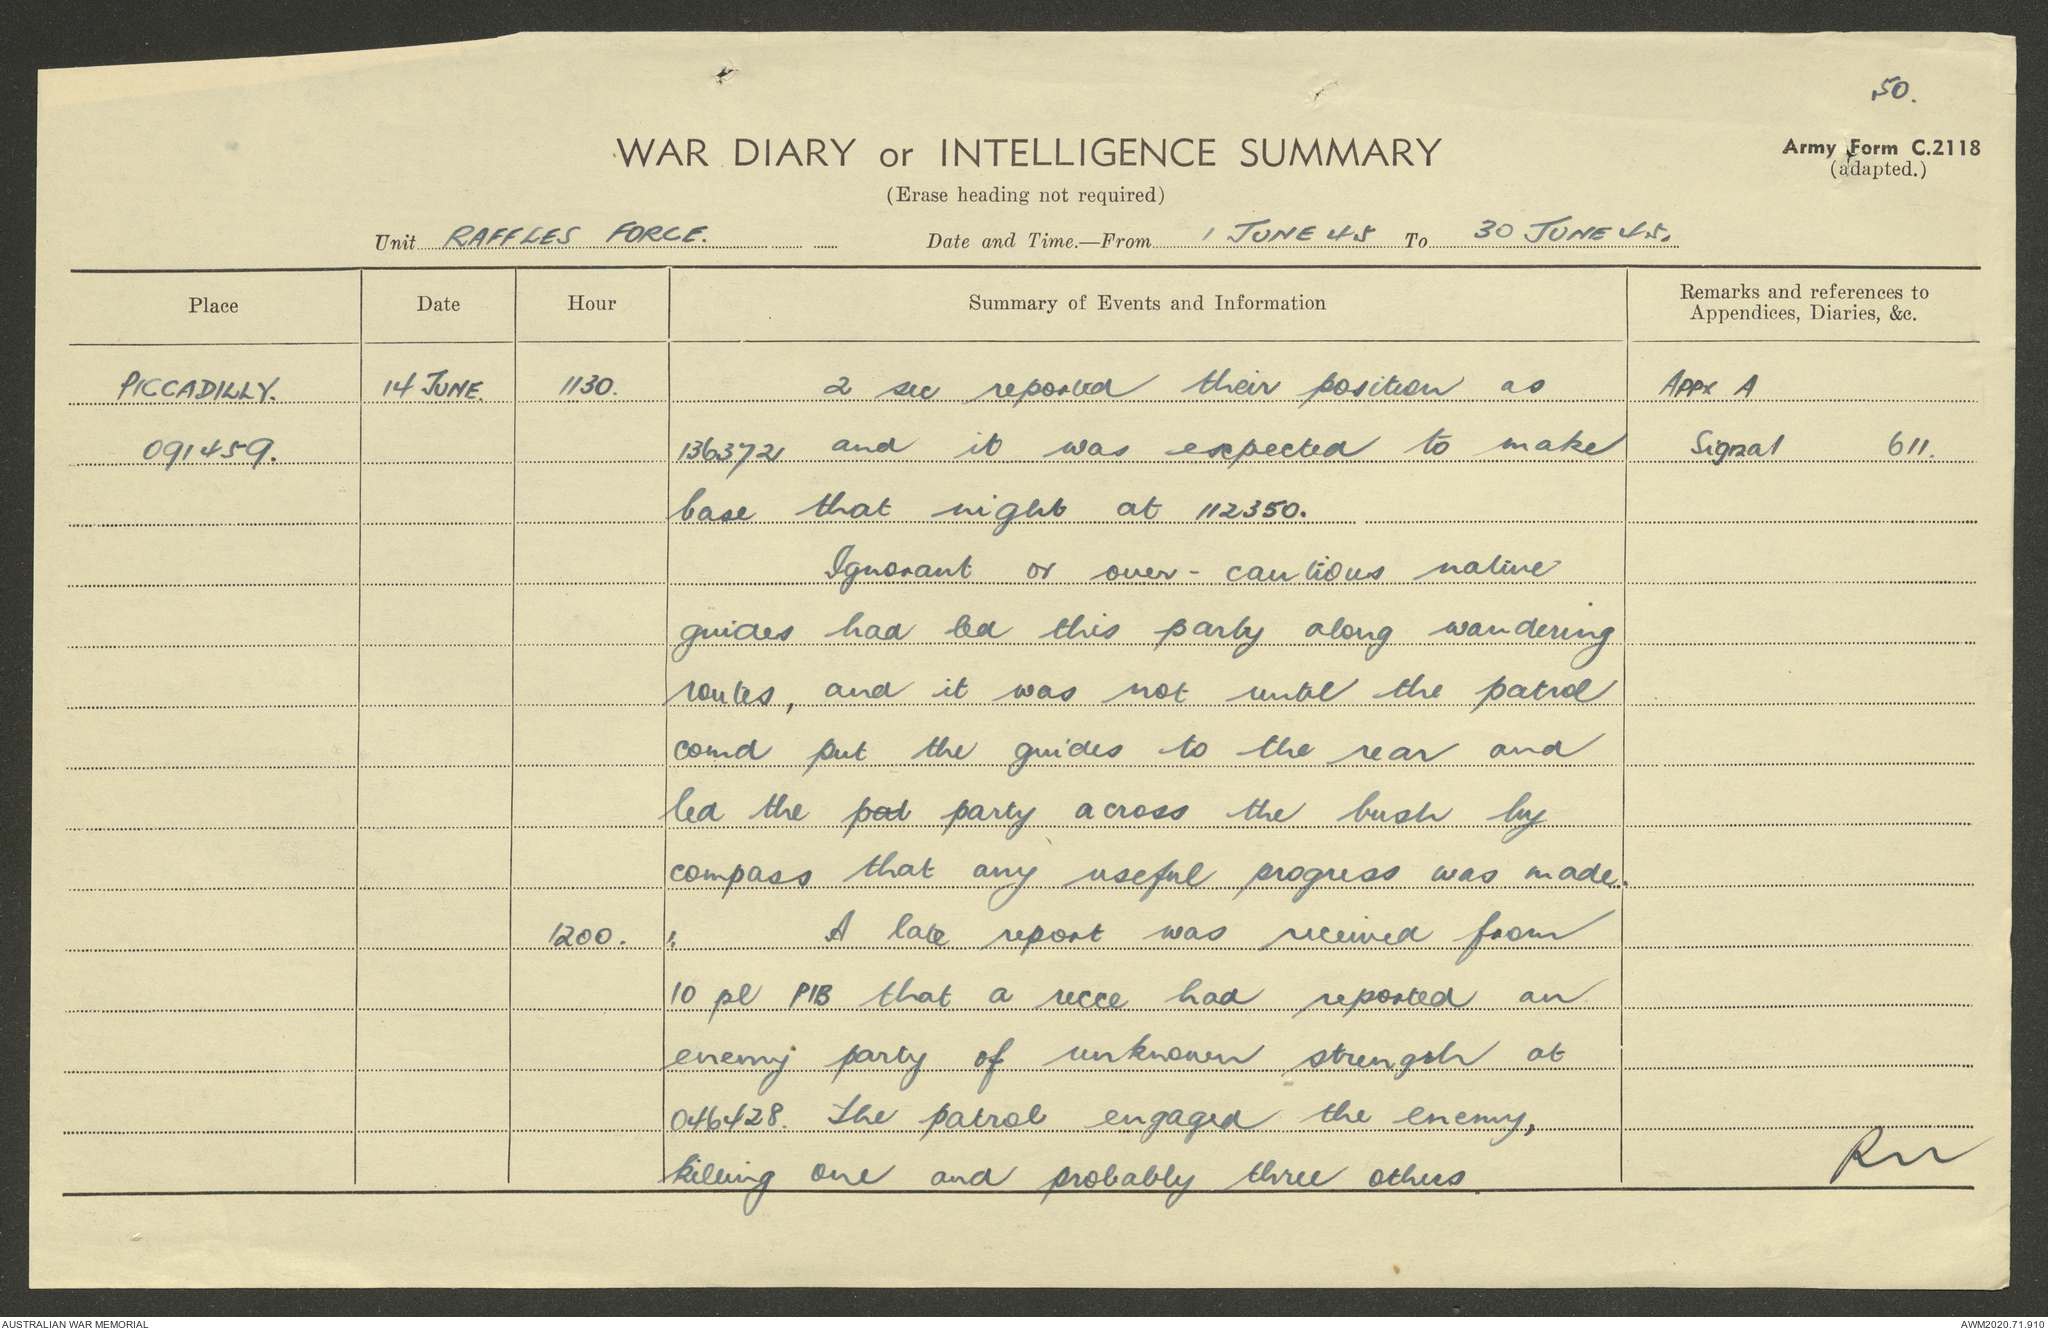 50.
WAR DIARY or INTELLIGENCE SUMMARY
Army Form C.2118
(adapted.)
(Erase heading not required)
Unit RAFFLES FORCE. Date and Time.—From 1 JUNE 45 To 30 JUNE 45.
Place Date Hour Summary of Events and Information Remarks and references to
Appendices, Diaries, &c.
PICCADILLY. 14 JUNE. 1130. 2 sec reported their position as Appx A
091459. 136372 and it was expected to make Signal 611.
base that night at 112350.
Ignorant or over-cautious native
guides had led this party along wandering
routes, and it was not until the patrol
comd put the guides to the rear and
led the pat party across the bush by
compass that any useful progress was made.
1200. A late report was received from
10 pl PIB that a recce had reported an
enemy party of unknown strength at
046428. The patrol engaged the enemy,
killing one and probably three others.
AUSTRALIAN WAR MEMORIAL AWM2020.71.910